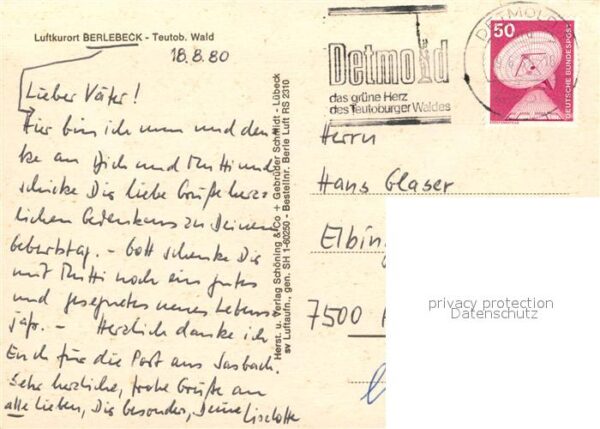 Luftkurort BERLEBECK - Teutob. Wald
18.8.80
Lieber Väter!
Hier bin ich nun und den
ke an Dich und Mutti und
schicke Dir liebe Grüße herz
lichen Gedenkens zu Deinem
Geburtstag. - Gott schenke Dir
mit Mutti noch ein gutes
und gesegnetes neues Lebens
jahr. - Herzlich danke ich
Euch für die Post aus Sasbach.
Sehr herzliche, frohe Grüße an
alle Lieben, Dir besonders, Deine Liselotte
Herst. u. Verlag Schöning & Co + Gebrüder Schmidt - Lübeck
sv Luftaufn., gen. SH 1-60250 - Bestellnr. Berle Luft RS 2310
Detmold
das grüne Herz
des Teutoburger Waldes
DETMOLD
50
DEUTSCHE BUNDESPOST
Herrn
Hans Glaser
Elbin
7500
privacy protection
Datenschutz